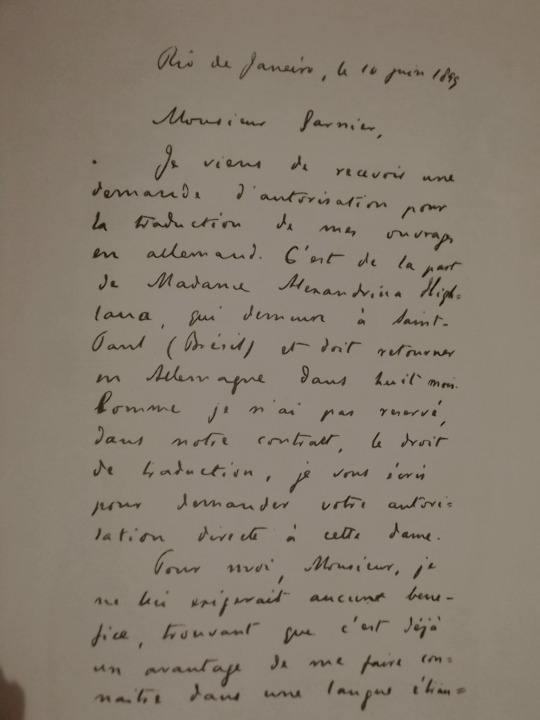 Rio de Janeiro, le 10 juin 1899
Monsieur Garnier,
Je viens de recevoir une
demande d'autorisation pour
la traduction de mes ouvrages
en allemand. C'est de la part
de Madame Alexandrina High-
land, qui demeure à Saint-
Paul (Brésil) et doit retourner
en Allemagne dans huit mois.
Comme je n'ai pas reservé,
dans notre contrat, le droit
de traduction, je vous écris
pour demander votre autori=
sation directe à cette dame.
Pour moi, Monsieur, je
ne lui exigerait aucune bene-
fice, trouvant que c'est déjà
un avantage de me faire con=
naitre dans une langue étran=